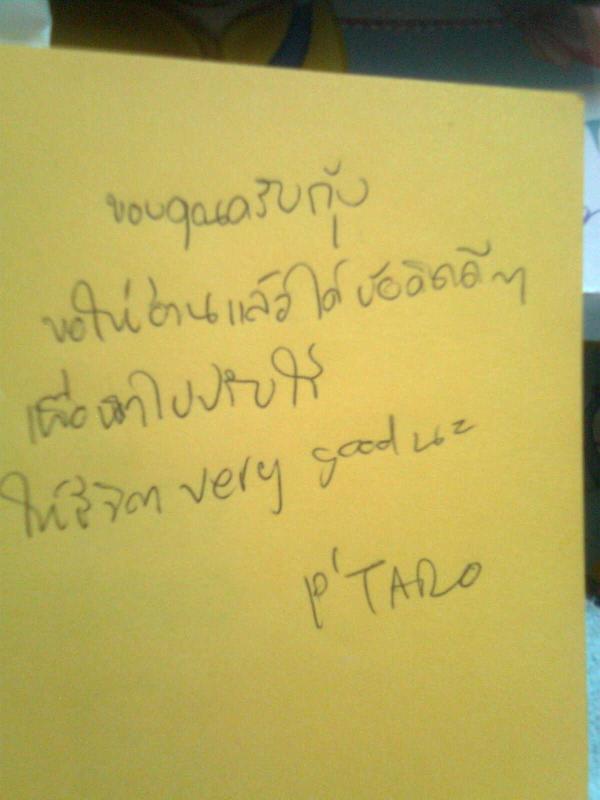 ขอบคุณครับกุ้ง
ขอให้อ่านแล้วได้ข้อคิดดีๆ
เพื่อนำไปปรับใช้
ให้ชีวิต very good นะ
P'TARO